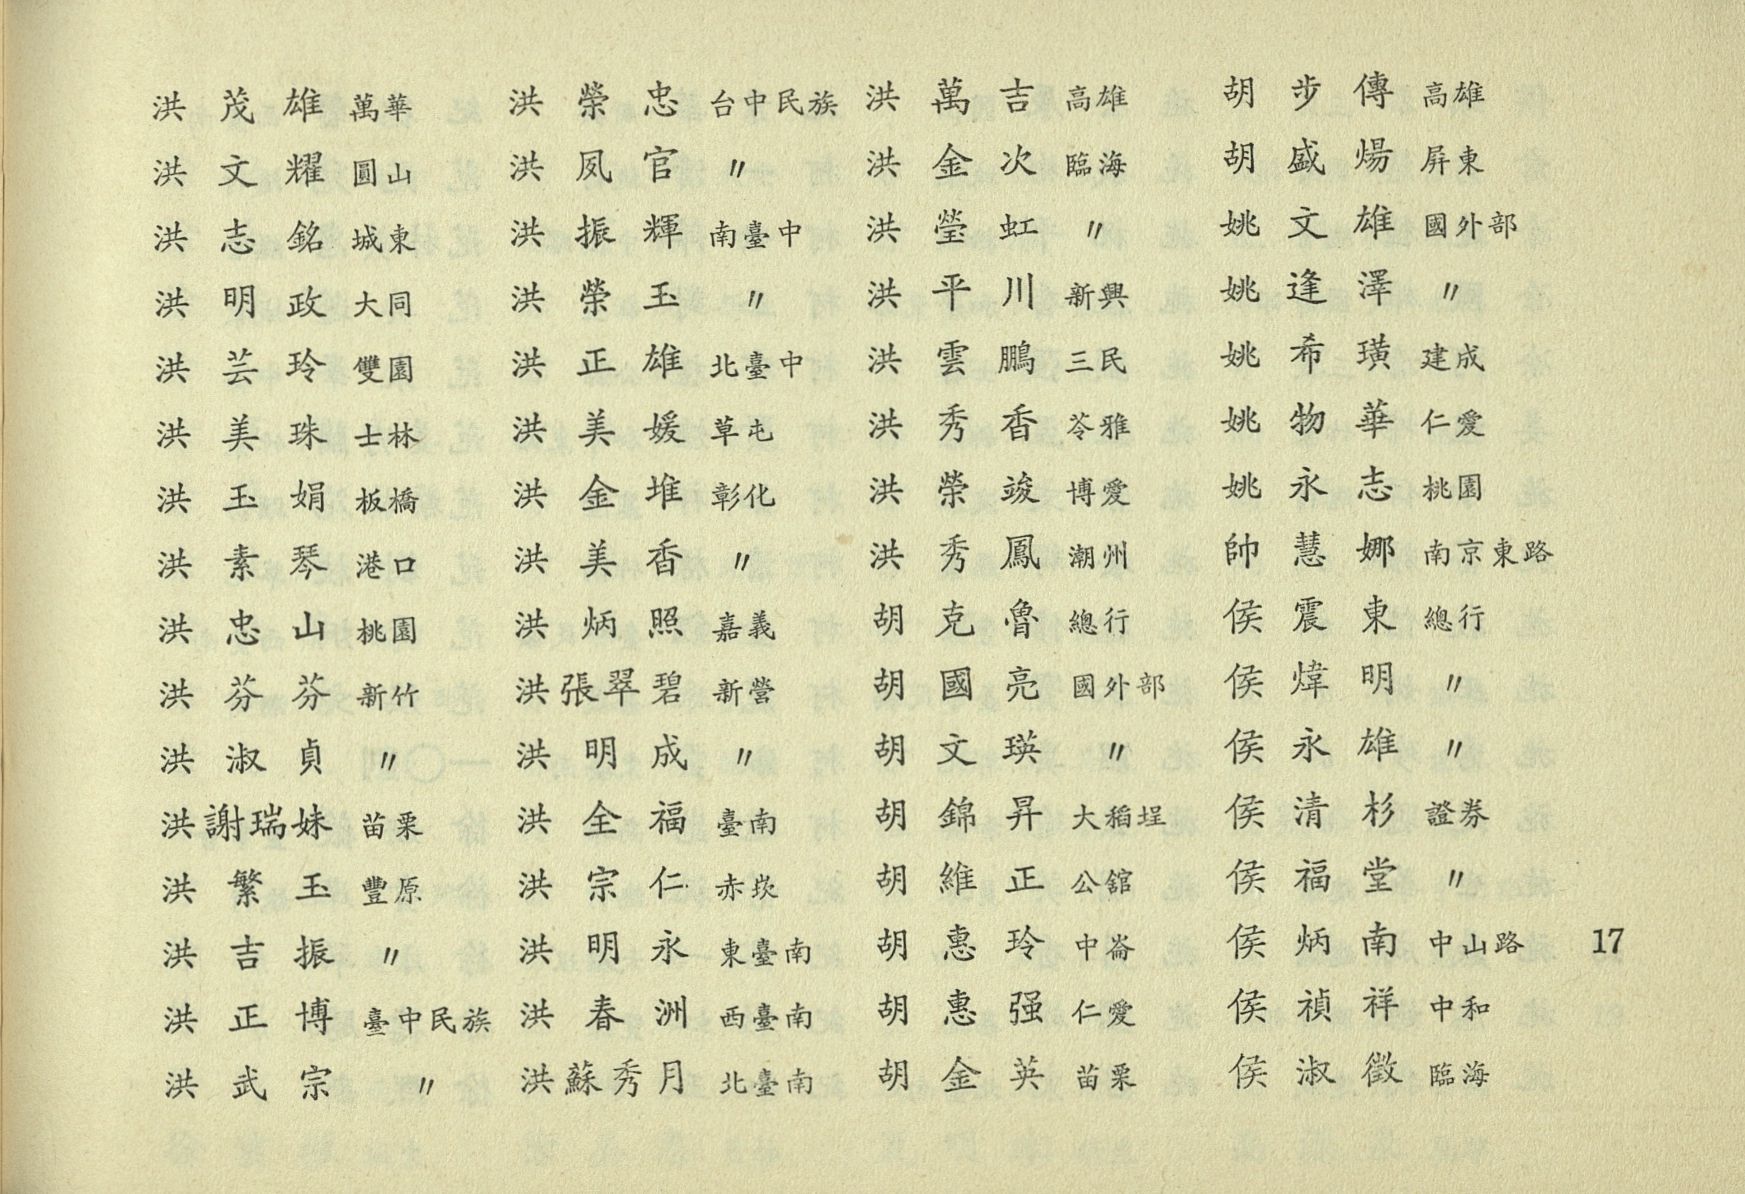 洪茂雄 萬華
洪文耀 圓山
洪志銘 城東
洪明政 大同
洪芸玲 雙園
洪美珠 士林
洪玉娟 板橋
洪素琴 港口
洪忠山 桃園
洪芬芬 新竹
洪淑貞 〃
洪謝瑞妹 苗栗
洪繁玉 豐原
洪吉振 〃
洪正博 臺中民族
洪武宗 〃
洪榮忠 台中民族
洪凤官 〃
洪振輝 南臺中
洪榮玉 〃
洪正雄 北臺中
洪美媛 草屯
洪金堆 彰化
洪美香 〃
洪炳照 嘉義
洪張翠碧 新營
洪明成 〃
洪全福 臺南
洪宗仁 赤崁
洪明永 東臺南
洪春洲 西臺南
洪蘇秀月 北臺南
洪萬吉 高雄
洪金次 臨海
洪瑩虹 〃
洪平川 新興
洪雲鵬 三民
洪秀香 苓雅
洪榮竣 博愛
洪秀鳳 潮州
胡克魯 總行
胡國亮 國外部
胡文瑛 〃
胡錦昇 大稻埕
胡維正 公舘
胡惠玲 中崙
胡惠强 仁愛
胡金英 苗栗
胡步傳 高雄
胡盛煬 屏東
姚文雄 國外部
姚逢澤 〃
姚希璜 建成
姚物華 仁愛
姚永志 桃園
帥慧娜 南京東路
侯震東 總行
侯煒明 〃
侯永雄 〃
侯清杉 證券
侯福堂 〃
侯炳南 中山路
侯禎祥 中和
侯淑徵 臨海
17